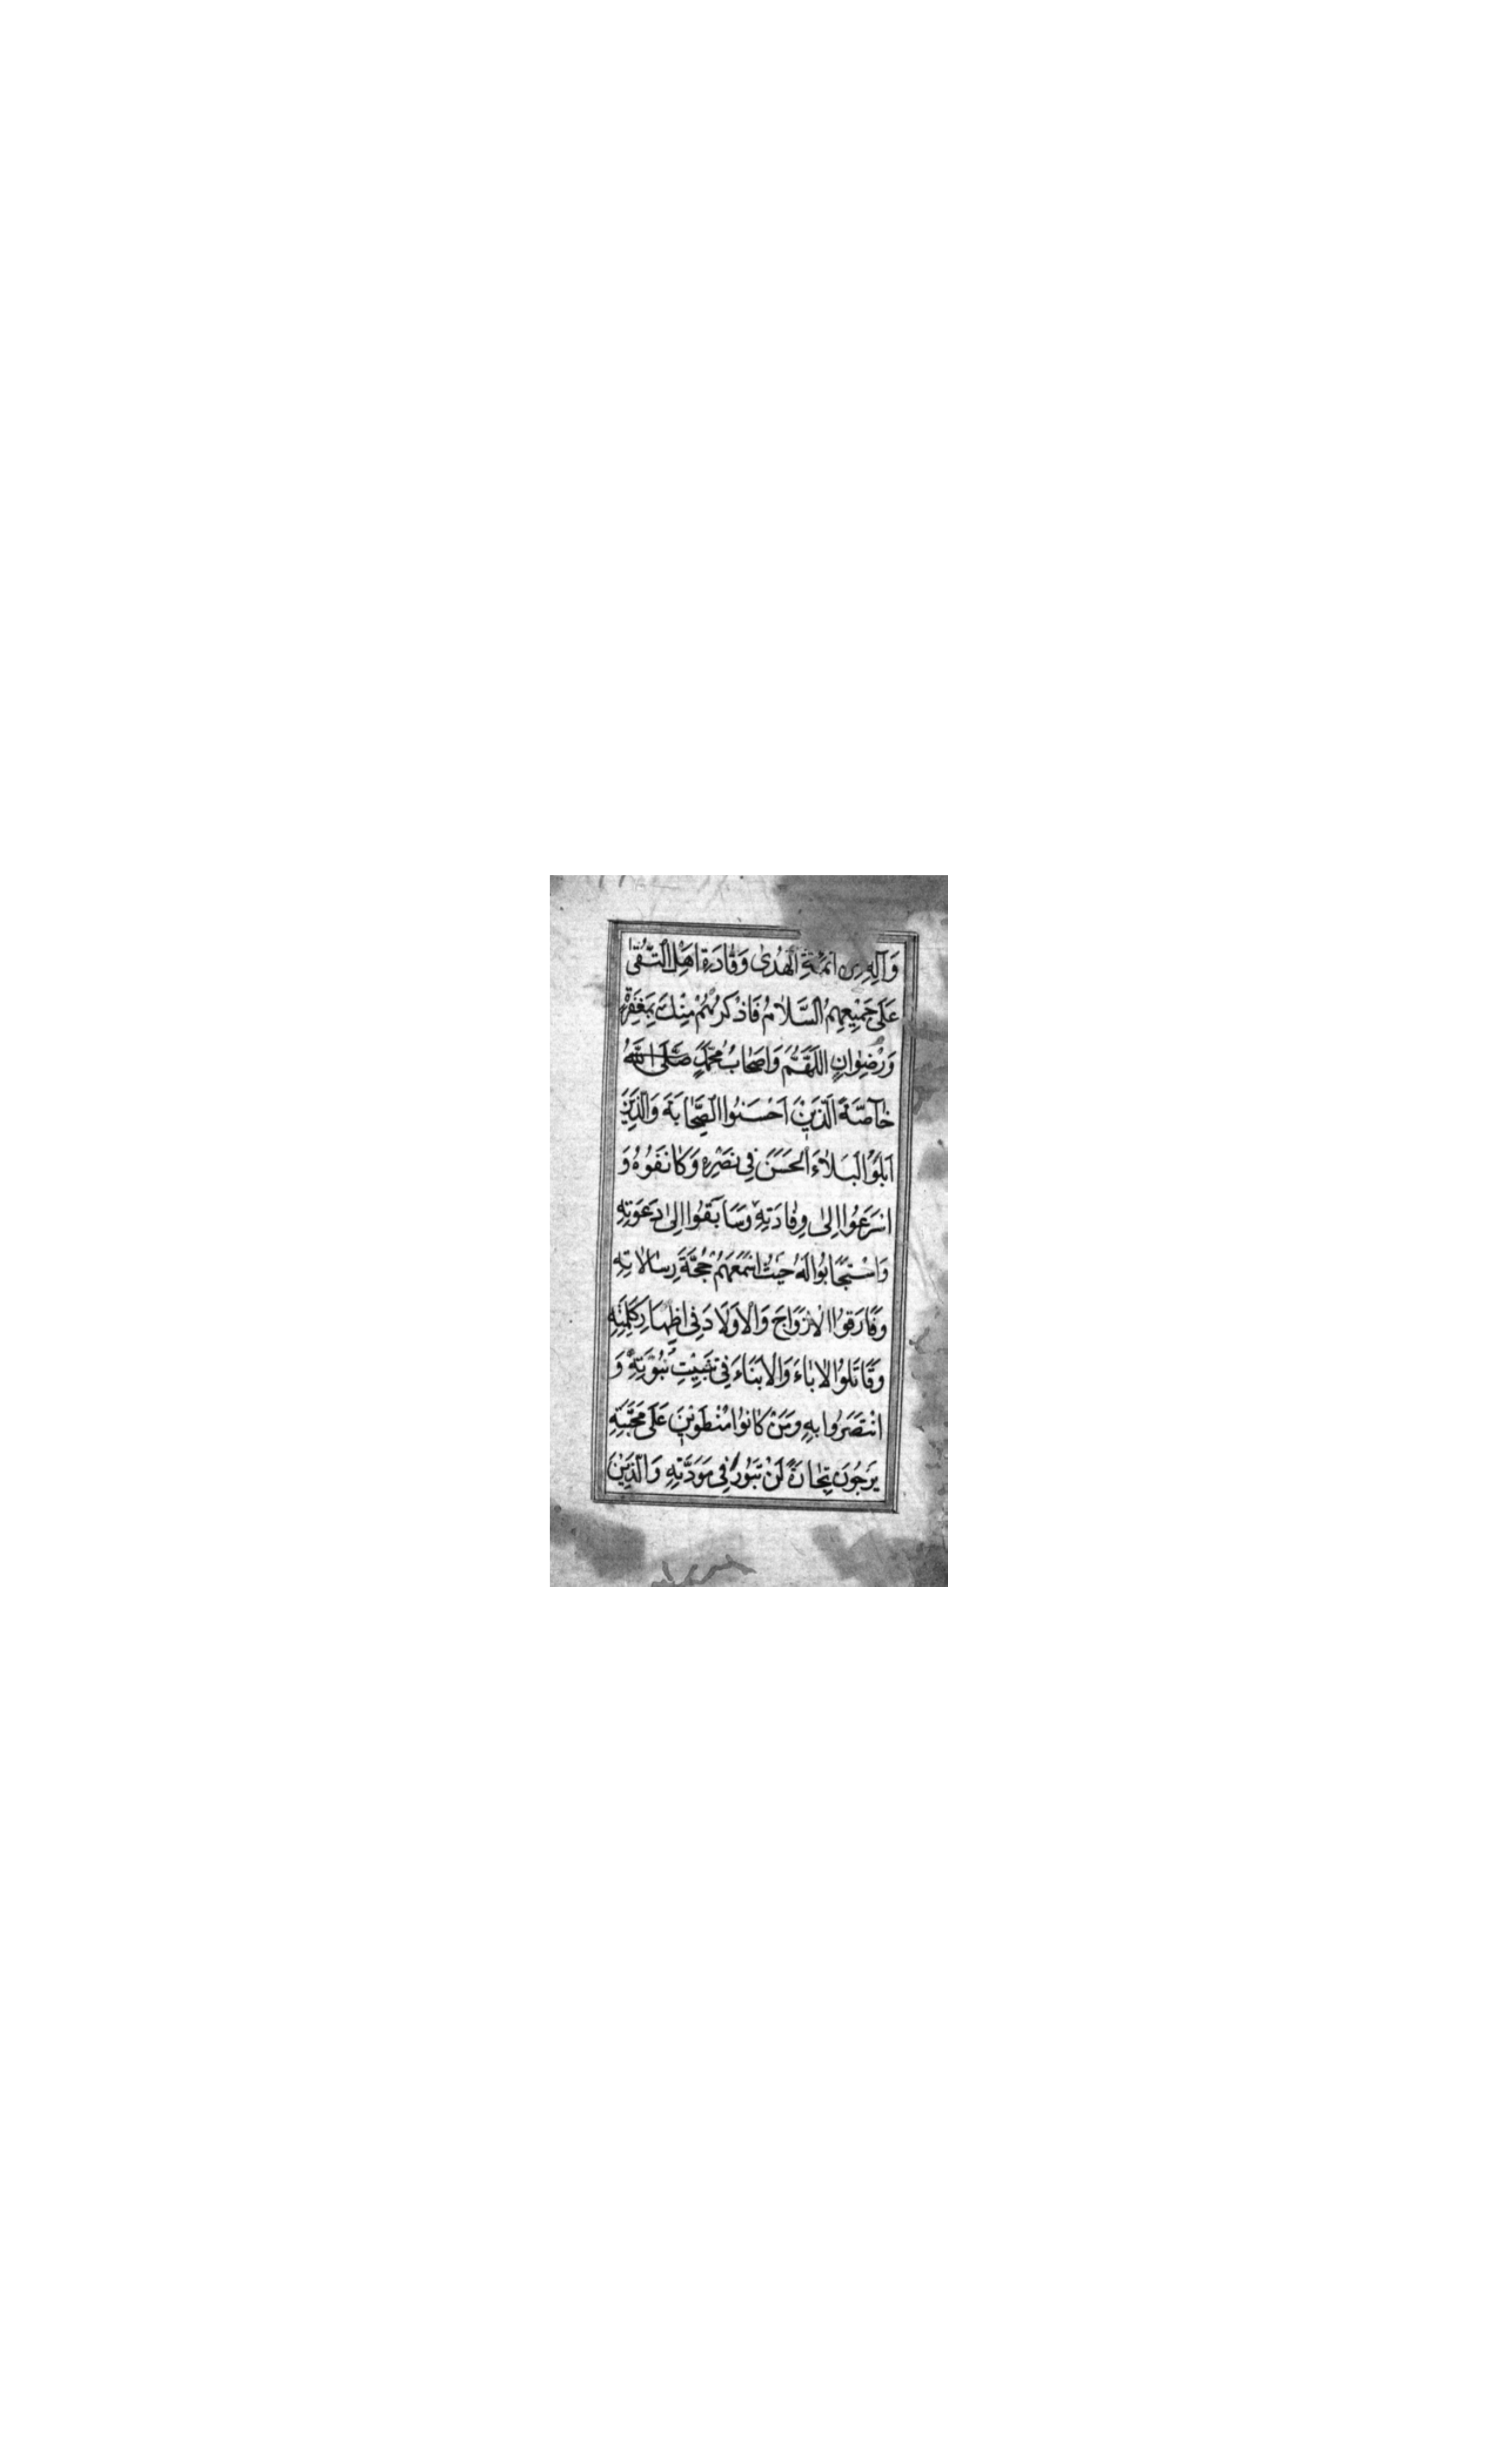 وَآلِهِ مِن اَئِمَّةِ الْهُدٰى وَقَادَةِ اَهْلِ التُّقٰى
عَلٰى جَمِيعِهِمُ السَّلَامُ فَاذْكُرْهُمْ مِنْكَ بِمَغْفِرَةٍ
وَرِضْوَانٍ اَللّٰهُمَّ وَاَصْحَابُ مُحَمَّدٍ صَلَّى اللّٰهُ
خَاصَّةً الَّذِيْنَ اَحْسَنُوا الصَّحَابَةَ وَالَّذِيْنَ
اَبْلَوُا الْبَلَاءَ الْحَسَنَ فِي نَصْرِهِ وَكَانَفُوهُ وَ
اَسْرَعُوا اِلٰى وِفَادَتِهِ وَسَابَقُوا اِلٰى دَعْوَتِهِ
وَاسْتَجَابُوا لَهُ حَيْثُ اَسْمَعَهُمْ حُجَّةَ رِسَالَاتِهِ
وَفَارَقُوا الْاَزْوَاجَ وَالْاَوْلَادَ فِي اِظْهَارِ كَلِمَتِهِ
وَقَاتَلُوا الْاٰبَاءَ وَالْاَبْنَاءَ فِي تَثْبِيْتِ نُبُوَّتِهِ وَ
انْتَصَرُوا بِهِ وَمَنْ كَانُوا مُنْطَوِيْنَ عَلٰى مَحَبَّتِهِ
يَرْجُونَ تِجَارَةً لَنْ تَبُورَ فِي مَوَدَّتِهِ وَالَّذِيْنَ